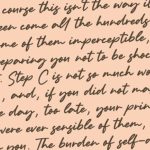 course this isn't the way i
een come all the hundreds
ome of them imperceptible,
reparing you not to be shoc
. Step C is not so much wo
, and, if you did not ma
e day, too late, your prin
were ever sensible of them,
you. The burden of self-